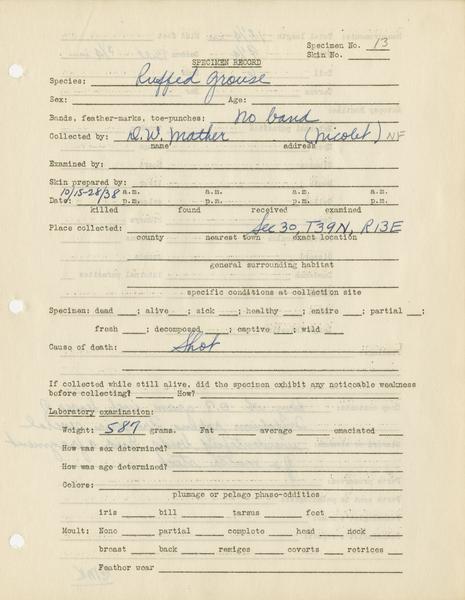 Specimen No. 13
Skin No.
SPECIMEN RECORD
Species: Ruffed grouse
Sex: Age:
Bands, feather-marks, toe-punches: No band
Collected by: D.W. Mather (Nicolet) NF
name address
Examined by:
Skin prepared by:
10/15-28/38 a.m. a.m. a.m. a.m.
Date: p.m. p.m. p.m. p.m.
killed found received examined
Place collected: Sec 30, T39N, R13E
county nearest town exact location
general surrounding habitat
specific conditions at collection site
Specimen: dead ; alive ; sick ; healthy ; entire ; partial ;
fresh ; decomposed ; captive ; wild
Cause of death: Shot
If collected while still alive, did the specimen exhibit any noticeable weakness
before collecting? How?
Laboratory examination:
Weight: 587 grams. Fat average emaciated
How was sex determined?
How was age determined?
Colors:
plumage or pelage phase-oddities
iris bill tarsus feet
Moult: None partial complete head neck
breast back remiges coverts retrices
Feather wear